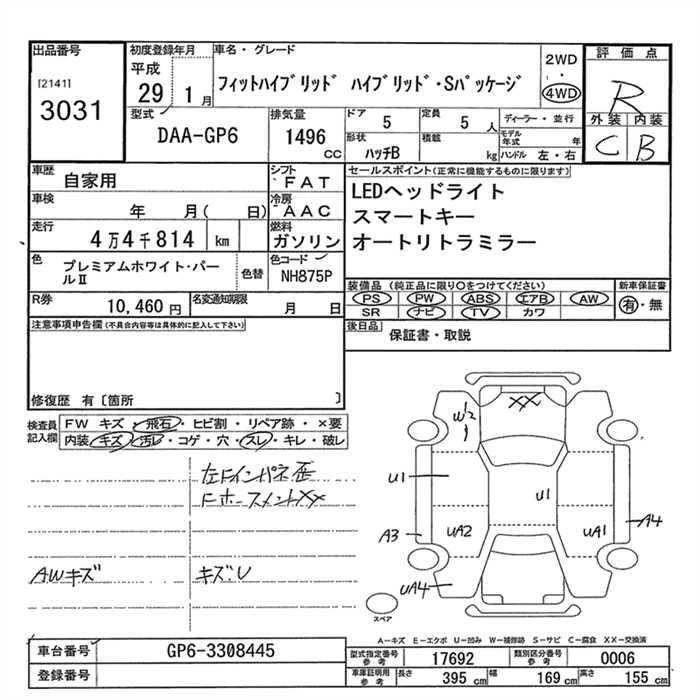 出品番号
[2141]
3031
初度登録年月
平成
29 1月
車名・グレード
フィットハイブリッド ハイブリッド・Sパッケージ
2WD
・
4WD
評価点
R
外装 内装
C B
型式
DAA-GP6
排気量
1496
CC
ドア 5
定員 5 人
形状 ハッチB
積載 kg
ディーラー・並行
モデル年式 年
ハンドル 左・右
車歴 自家用
シフト FAT
車検 年 月( 日)
冷房 AAC
走行 4万4千814 km
燃料 ガソリン
色 プレミアムホワイト・パールⅡ
色替
色コード NH875P
R券 10,460円
名変通知期限 月 日
セールスポイント(正常に機能するものに限ります)
LEDヘッドライト
スマートキー
オートリトラミラー
装備品 (純正品に限り○をつけてください)
PS PW ABS エアB AW
SR ナビ TV カワ
新車保証書
有・無
後日品 保証書・取説
注意事項申告欄(不具合内容等は具体的に記入して下さい)
修復歴 有〔箇所 〕
検査員記入欄
FW キズ・飛石・ヒビ割・リペア跡・×要
内装 キズ・汚レ・コゲ・穴・スレ・キレ・破レ
左ドインパネ歪
ドホースメントXX
AWキズ
キズ・U
XX
W2
U1
U1
A3
UA2
UA1
A4
UA4
スペア
A-キズ E-エクボ U-凹み W-補修跡 S-サビ C-腐食 XX-交換済
車台番号 GP6-3308445
登録番号
型式指定番号 参考 17692
類別区分番号 参考 0006
車庫証明用 参考 長さ 395 cm 幅 169 cm 高さ 155 cm